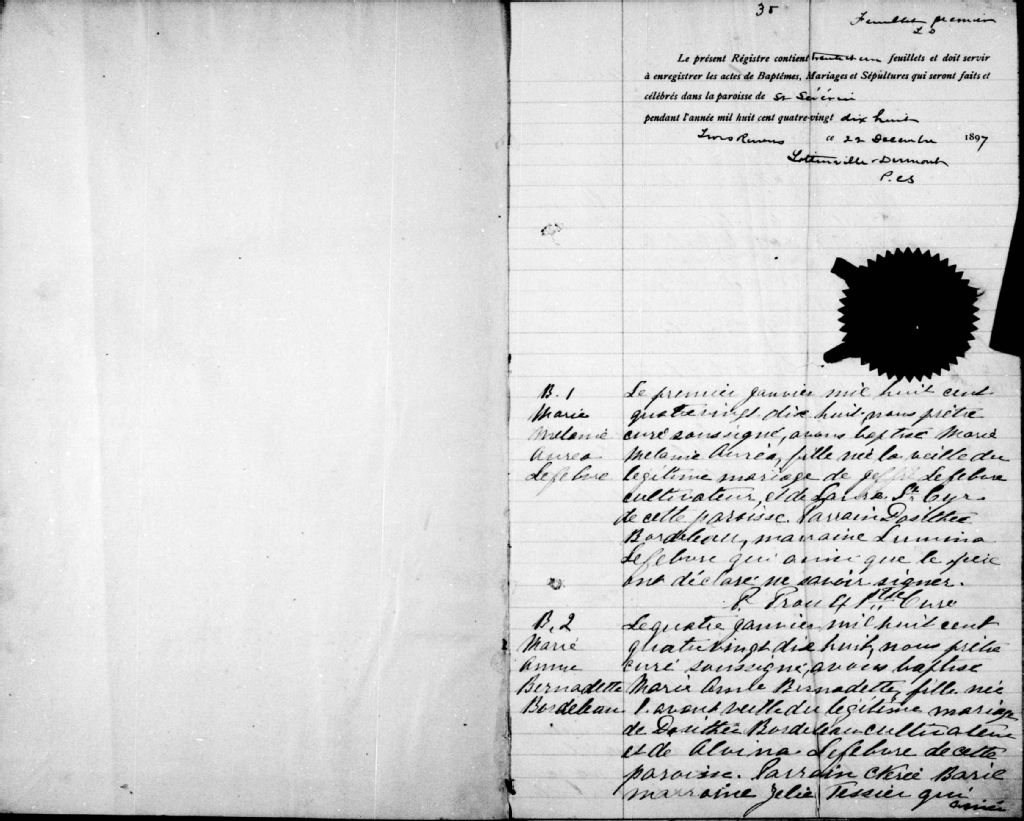 35
Feuillet premier
L D
Le présent Régistre contient trente et un feuillets et doit servir
à enregistrer les actes de Baptêmes, Mariages et Sépultures qui seront faits et
célébrés dans la paroisse de St Sévérin
pendant l'année mil huit cent quatre-vingt dix huit
Trois Rivières ce 22 Decembre 1897
Lottinville-Dumont
P. CS
B. 1
Marie
Mélanie
Aurea
Lefebvre
Le premier janvier mil huit cent
quatrevingt dix huit, nous prêtre
curé soussigné, avons baptisé Marie
Mélanie Auréa, fille née la veille du
légitime mariage de Lefebvre
cultivateur, et de Laura St. Cyr
de cette paroisse. Parrain Dosithée
Bordeleau, marraine Lumina
Lefebvre qui ainsi que le père
ont déclaré ne savoir signer.
P. Ptre Curé
B. 2
Marie
Anne
Bernadette
Bordeleau
Le quatre janvier mil huit cent
quatrevingt dix huit, nous prêtre
curé soussigné, avons baptisé
Marie Anne Bernadette, fille née
l'avant veille du légitime mariage
de Dosithée Bordeleau cultivateur
et de Alvina Lefebvre de cette
paroisse. Parrain Baril
marraine Zelie Tessier qui
ainsi